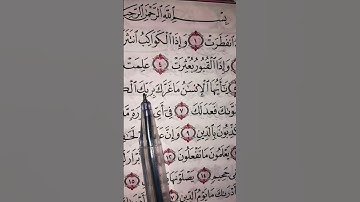 بِسْمِ ٱللَّهِ ٱلرَّحْمَٰنِ ٱلرَّحِيمِ
ٱنفَطَرَتْ ١ وَإِذَا ٱلْكَوَاكِبُ ٱنتَثَرَ
وَإِذَا ٱلْقُبُورُ بُعْثِرَتْ ٤ عَلِمَتْ
يَٰٓأَيُّهَا ٱلْإِنسَٰنُ مَا غَرَّكَ بِرَبِّكَ
فَعَدَلَكَ ٧ فِىٓ أَىِّ
بِٱلدِّينِ ٩ وَإِنَّ
يَعْلَمُونَ مَا تَفْعَلُونَ ١٢
جَحِيمٍ ١٤ يَصْلَوْنَهَا ١٥
مَا يَوْمُ ٱلدِّينِ